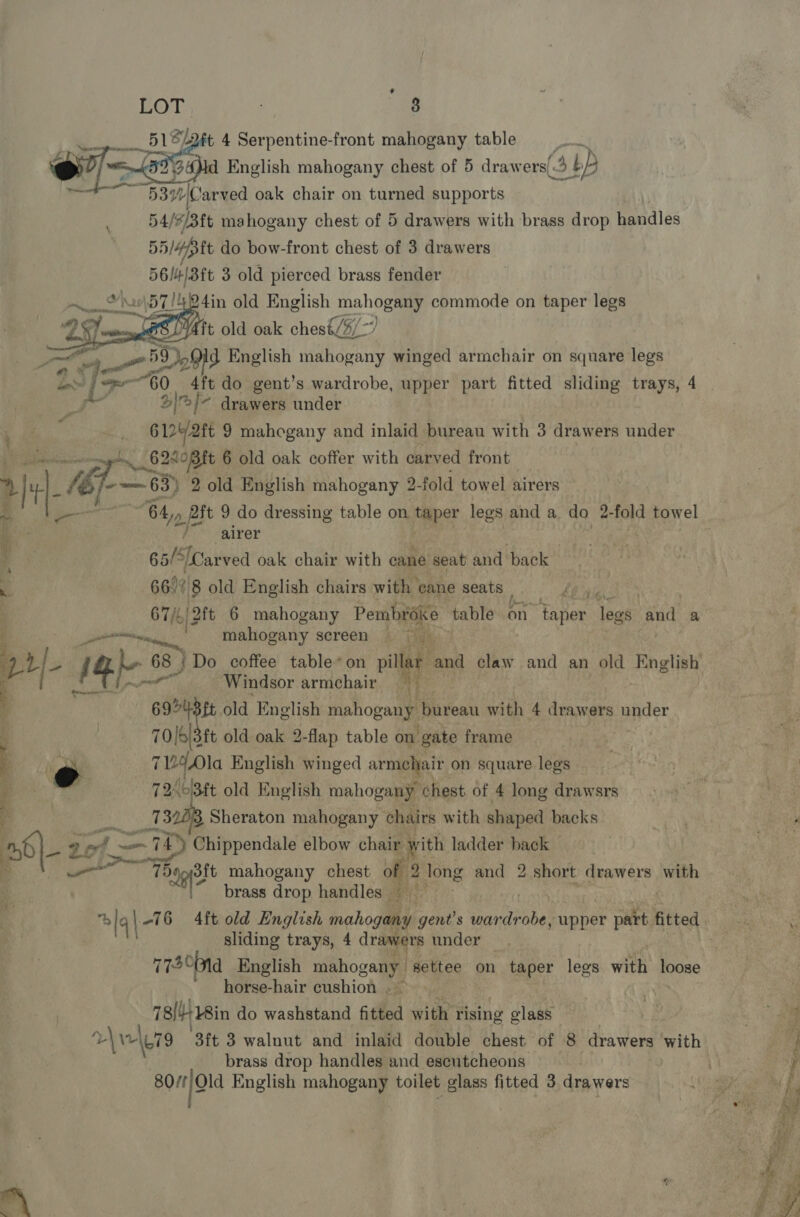 LOT 3
51 2ft 4 Serpentine-front mahogany table
52 Old English mahogany chest of 5 drawers
53 Carved oak chair on turned supports
54 3ft mahogany chest of 5 drawers with brass drop handles
55 3ft do bow-front chest of 3 drawers
56 3ft 3 old pierced brass fender
57 24in old English mahogany commode on taper legs
58 4ft old oak chest
59 Old English mahogany winged armchair on square legs
60 4ft do gent's wardrobe, upper part fitted sliding trays, 4
drawers under
61 2ft 9 mahogany and inlaid bureau with 3 drawers under
62 3ft 6 old oak coffer with carved front
63 2 old English mahogany 2-fold towel airers
64 2ft 9 do dressing table on taper legs and a do 2-fold towel
airer
65 Carved oak chair with cane seat and back
66 8 old English chairs with cane seats
67 2ft 6 mahogany Pembroke table on taper legs and a
mahogany screen
68 Do coffee table on pillar and claw and an old English
Windsor armchair
69 3ft old English mahogany bureau with 4 drawers under
70 3ft old oak 2-flap table on gate frame
71 Old English winged armchair on square legs
72 3ft old English mahogany chest of 4 long drawsrs
73 3 Sheraton mahogany chairs with shaped backs
74 Chippendale elbow chair with ladder back
75 3ft mahogany chest of 2 long and 2 short drawers with
brass drop handles
76 4ft old English mahogany gent's wardrobe, upper part fitted
sliding trays, 4 drawers under
77 Old English mahogany settee on taper legs with loose
horse-hair cushion
78 18in do washstand fitted with rising glass
79 3ft 3 walnut and inlaid double chest of 8 drawers with
brass drop handles and escutcheons
80 Old English mahogany toilet glass fitted 3 drawers